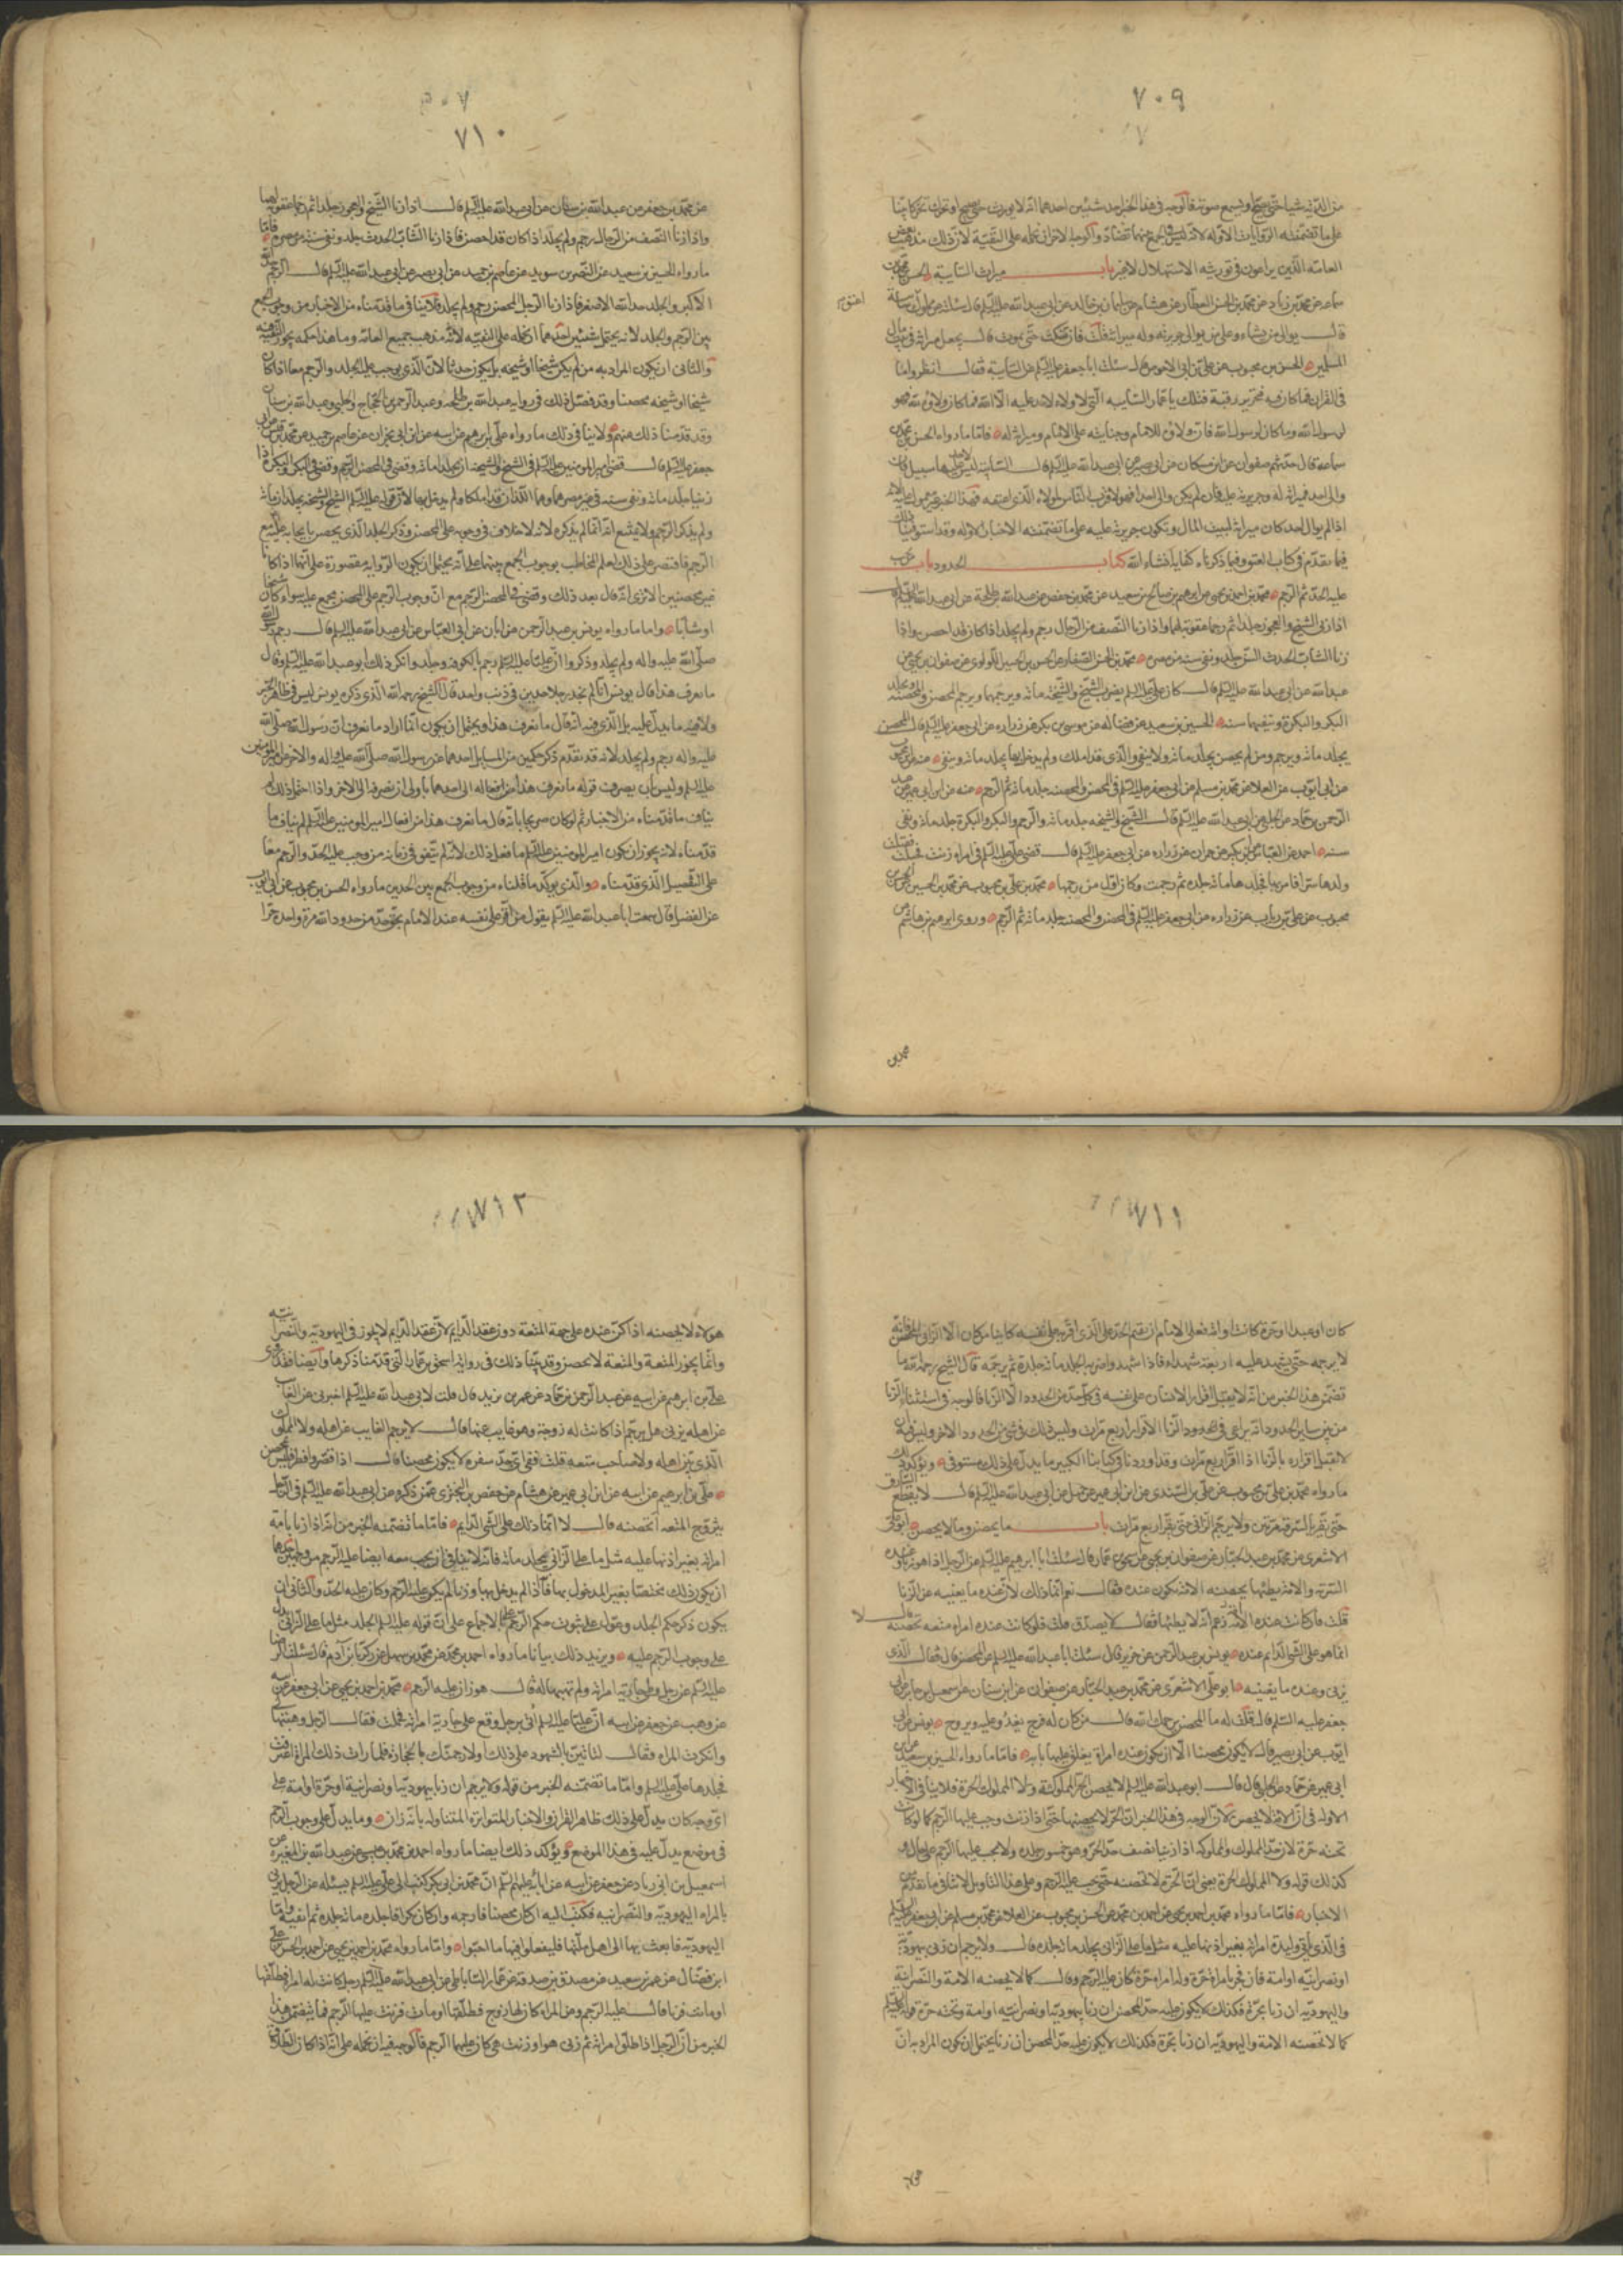 ٧٠٩
من الدية شيئا حتى يصيح ويسمع صوته فالوجه في هذا الخبر احد شيئين احدهما انه لا يورث حتى يصيح او تحرك تحركا بينا
على ما تضمنته الروايات الاولة لانه ليس في الجمع بينهما تضاد والوجه الاخر ان نحمله على التقية لان ذلك مذهب بعض
العامة الذين يراعون في توريثه الاستهلال لا غير باب ميراث السايبة الحسن بن محمد بن
سماعة عن محمد بن زياد عن محمد بن الحسن العطار عن هشام عن سليمان بن خالد عن ابي عبد الله عليه السلم قال سئلته عن مملوك اعتق سايبة
قال يوالي من شاء وعلى من يوالي جريرته وله ميراثه قلت فان سكت حتى يموت قال يجعل ميراثه في بيت مال
المسلمين الحسن بن محبوب عن علي بن ابي الاحوص قال سئلت ابا جعفر عليه السلم عن السايبة فقال انظروا ما
في القران فما كان فيه فتحرير رقبة فتلك يا عمار السايبة التي لا ولاء لاحد عليه الا الله فما كان ولاؤه لله فهو
لرسول الله وما كان لرسول الله فان ولاؤه للامام وجنايته على الامام وميراثه له فاما ما رواه الحسن بن محمد بن
سماعة قال حدثهم صفوان عن ابن مسكان عن ابي بصير عن ابي عبد الله عليه السلم قال السايبة ليس لاحد عليها سبيل فان
والى احدا فميراثه له وجريرته عليه فان لم يكن والى احدا فهو لاقرب الناس لمولاه الذي اعتقه فهذا الخبر غير معمول عليه لانه
اذا لم يوال احدا كان ميراثه لبيت المال وتكون جريرته عليه على ما تضمنته الاخبار الاولة وقد استوفينا ذلك
فيما تقدم في كتاب العتق وفيما ذكرناه كفاية انشاء الله كتاب الحدود باب من يجب
عليه الجلد ثم الرجم محمد بن احمد بن يحيى عن ابراهيم بن صالح بن سعيد عن محمد بن حفص عن عبد الله بن طلحة عن ابي عبد الله عليه السلم قال
اذا زنى الشيخ والعجوز جلدا ثم رجما عقوبة لهما واذا زنا النصف من الرجال رجم ولم يجلد اذا كان قد احصن واذا
زنا الشاب الحدث السن جلد ونفي سنة من مصره محمد بن الحسن الصفار عن الحسن بن الحسين اللؤلؤي عن صفوان بن يحيى عن
عبد الله عن ابي عبد الله عليه السلم قال كان علي عليه السلم يضرب الشيخ والشيخة مائة ويرجمهما ويرجم المحصن والمحصنة ويجلد
البكر والبكرة وينفيهما سنة الحسين بن سعيد عن فضالة عن موسى بن بكر عن زرارة عن ابي جعفر عليه السلم قال المحصن
يجلد مائة ويرجم ومن لم يحصن يجلد مائة ولا ينفى والذي قد املك ولم يدخل بها يجلد مائة وينفى عنه عن ابن محبوب
عن ابي ايوب عن العلا عن محمد بن مسلم عن ابي جعفر عليه السلم في المحصن والمحصنة جلد مائة ثم الرجم عنه عن ابن ابي عمير عن عبد
الرحمن بن حماد عن الحلبي عن ابي عبد الله عليه السلم قال الشيخ والشيخة جلد مائة والرجم والبكر والبكرة جلد مائة ونفي
سنة احمد عن العباس عن ابن بكير عن حمران عن زرارة عن ابي جعفر عليه السلم قال قضى علي عليه السلم في امراة زنت فحبلت فقتلت
ولدها سرا فامر بها فجلدها مائة جلدة ثم رجمت وكان اول من رجمها محمد بن علي بن محبوب عن محمد بن الحسين عن الحسن بن
محبوب عن علي بن رياب عن زرارة عن ابي جعفر عليه السلم في المحصن والمحصنة جلد مائة ثم الرجم وروى ابرهيم بن هاشم عن
محمد بن
٧١٠
عن محمد بن جعفر عن عبد الله بن سنان عن ابي عبد الله عليه السلم قال اذا زنا الشيخ والعجوز جلدا ثم رجما عقوبة لهما
واذا زنا النصف من الرجال رجم ولم يجلد اذا كان قد احصن فاذا زنا الشاب الحدث جلد ونفي سنة من مصره فاما
ما رواه الحسين بن سعيد عن النضر بن سويد عن عاصم بن حميد عن ابي بصير عن ابي عبد الله عليه السلم قال الرجم حد الله
الاكبر والجلد حد الله الاصغر فاذا زنا الرجل المحصن رجم ولم يجلد فلا ينافي ما قدمناه من الاخبار من وجوب الجمع
بين الرجم والجلد لانه يحتمل شيئين احدهما ان نحمله على التقية لانه مذهب جميع العامة وما هذا حكمه يجوز التقية فيه
والثاني ان يكون المراد به من لم يكن شيخا او شيخة بل يكون حدثا لان الذي يوجب عليه الجلد والرجم معا اذا كان
شيخا او شيخة محصنا وقد فصل ذلك في رواية عبد الله بن طلحة وعبد الرحمن بن الحجاج والحلبي وعبد الله بن سنان
وقد قدمنا ذلك عنهم ولا ينافي ذلك ما رواه علي بن ابرهيم عن ابيه عن ابن ابي نجران عن عاصم بن حميد عن محمد بن قيس عن ابي
جعفر عليه السلم قال قضى امير المؤمنين عليه السلم في الشيخ والشيخة ان يجلدا مائة وقضى في المحصن الرجم وقضى في البكر والبكرة اذا
زنيا جلد مائة ونفي سنة في غير مصرهما وهما اللذان قد املكا ولم يدخل بها لان قوله عليه السلم الشيخ والشيخة يجلدان مائة
ولم يذكر الرجم ولا يمتنع انه انما لم يذكره لانه لا خلاف في وجوبه على المحصن وذكر الجلد الذي يختص بايجابه عليه مع
الرجم فاقتصر على ذلك لعلم المخاطب بوجوب الجمع بينهما على انه يحتمل ان يكون الرواية مقصورة على انهما اذا كانا
غير محصنين الا ترى انه قال بعد ذلك وقضى في المحصن الرجم مع ان وجوب الرجم على المحصن مجمع عليه سواء كان شيخا
او شابا واما ما رواه يونس بن عبد الرحمن عن ابان عن ابي العباس عن ابي عبد الله عليه السلم قال رجم رسول الله
صلى الله عليه واله ولم يجلد وذكروا ان عليا عليه السلم رجم بالكوفة وجلد فانكر ذلك ابو عبد الله عليه السلم وقال
ما نعرف هذا قال يونس اي لم نحد رجلا حدين في ذنب واحد قال الشيخ رحمه الله الذي ذكره يونس ليس في ظاهر الخبر
ولا فيه ما يدل عليه بل الذي فيه انه قال ما نعرف هذا ويحتمل ان يكون انما اراد ما نعرف ان رسول الله صلى الله
عليه واله رجم ولم يجلد لانه قد تقدم ذكر حكمين من السايل احدهما عن رسول الله صلى الله عليه واله والاخر عن امير المؤمنين
عليه السلم وليس بان يصرف قوله ما نعرف هذا من افعاله الى احدهما باولى ان نصرفه الى الاخر واذا احتمل ذلك لم
يناف ما قدمناه من الاخبار ثم لو كان صريحا بانه قال ما نعرف هذا من افعال امير المؤمنين عليه السلم لم يناف ما
قدمناه لانه يجوز ان يكون امير المؤمنين عليه السلم ما فعل ذلك لانه لم يتفق في زمانه من وجب عليه الحد والرجم معا
على التفصيل الذي قدمناه والذي يؤكد ما قلناه من وجوب الجمع بين الحدين ما رواه الحسن بن محبوب عن ابي ايوب
عن الفضيل قال سمعت ابا عبد الله عليه السلم يقول من اقر على نفسه عند الامام بحق حد من حدود الله مرة واحدة حرا
٧١١
كان او عبدا او حرة كانت او امة فعلى الامام ان يقيم الحد على الذي اقر به على نفسه كاينا من كان الا الزاني المحصن فانه
لا يرجمه حتى يشهد عليه اربعة شهداء فاذا شهدوا ضربه الجلد مائة جلدة ثم يرجمه قال الشيخ رحمه الله ما
تضمن هذا الخبر من انه لا يقبل اقرار الانسان على نفسه في كل حد من الحدود الا الزنا فالوجه في استثناء الزنا
من بين ساير الحدود انه يراعى في حدود الزنا الاقرار اربع مرات وليس ذلك في شئ من الحدود الاخر وليس فيه انه
لا يقبل اقراره بالزنا اذا اقر اربع مرات وقد اوردنا في كتابنا الكبير ما يدل على ذلك مستوفى ويؤكد ذلك
ما رواه محمد بن علي بن محبوب عن علي بن السندي عن ابن ابي عمير عن جميل عن ابي عبد الله عليه السلم قال لا يقطع السارق
حتى يقر بالسرقة مرتين ولا يرجم الزاني حتى يقر اربع مرات باب ما يحصن وما لا يحصن ابو علي
الاشعري عن محمد بن عبد الجبار عن صفوان بن يحيى عن اسحق بن عمار قال سئلت ابا ابرهيم عليه السلم عن الرجل اذا هو زنا وعنده
السرية والامة يطئها يحصنه الامة تكون عنده فقال نعم انما ذلك لان عنده ما يغنيه عن الزنا
قلت فان كانت عنده امة زعم انه لا يطئها فقال لا يصدق قلت فلو كانت عنده امراة متعة تحصنه قال لا
انما هو على الشئ الدايم عنده يونس بن عبد الرحمن عن حريز قال سئلت ابا عبد الله عليه السلم عن المحصن قال فقال الذي
يزني وعنده ما يغنيه ابو علي الاشعري عن محمد بن عبد الجبار عن صفوان عن ابن سنان عن اسمعيل بن جابر عن ابي
جعفر عليه السلم قال قلت له ما المحصن رحمك الله قال من كان له فرج يغدو عليه ويروح يونس عن ابي
ايوب عن ابي بصير قال لا يكون محصنا الا ان يكون عنده امراة يغلق عليها بابه فاما ما رواه الحسين بن سعيد عن ابن
ابي عمير عن حماد عن الحلبي قال قال ابو عبد الله عليه السلم لا يحصن الحر المملوكة ولا المملوك الحرة فلا ينافي الاخبار
الاولة في ان الامة تحصن لان الوجه في هذا الخبر ان الحر لا يحصنها حتى اذا زنت وجب عليها الرجم كما لو كانت
تحته حرة لان حد المملوك والمملوكة اذا زنيا نصف حد الحر وهو خمسون جلدة ولا يجب عليها الرجم على حال و
كذلك قوله ولا المملوك الحرة يعني ان الحرة لا تحصنه حتى يجب عليه الرجم وعلى هذا التاويل لا تنافي ما تقدم من
الاخبار فاما ما رواه محمد بن احمد بن يحيى عن احمد بن محمد عن الحسن بن محبوب عن العلا عن محمد بن مسلم عن ابي جعفر عليه السلم
في الذي ياتي وليدة امراته بغير اذنها عليه مثل ما على الزاني يجلد مائة جلدة قال ولا يرجم ان زنى بيهودية
او نصرانية او امة فان فجر بامراة حرة وله امراة حرة كان عليه الرجم وقال كما لا تحصنه الامة والنصرانية
واليهودية ان زنا بحرة فكذلك لا يكون عليه حد المحصن ان زنا بيهودية او نصرانية او امة وتحته حرة قوله عليه السلم
كما لا تحصنه الامة واليهودية ان زنا بحرة فكذلك لا يكون عليه حد المحصن ان زنا يحتمل ان يكون المراد به ان
٧١٢
هؤلاء لا يحصنه اذا كن عنده على جهة المتعة دون عقد الدايم لان عقد الدايم لا يجوز في اليهودية والنصرانية
وانما يجوز المتعة والمتعة لا تحصن وقد بينا ذلك في رواية اسحق بن عمار التي قدمنا ذكرها وايضا فقد روى
علي بن ابرهيم عن ابيه عن عبد الرحمن بن حماد عن عمر بن يزيد قال قلت لابي عبد الله عليه السلم اخبرني عن الغايب
عن اهله يزني هل يرجم اذا كانت له زوجة وهو غايب عنها قال لا يرجم الغايب عن اهله ولا المملك
الذي لم يبن باهله ولا صاحب متعة قلت ففي اي حد سفره لا يكون محصنا قال اذا قصر وافطر فليس بمحصن
علي بن ابرهيم عن ابيه عن ابن ابي عمير عن هشام عن حفص بن البختري عمن ذكره عن ابي عبد الله عليه السلم في الرجل
يتزوج المتعة اتحصنه قال لا انما ذلك على الشئ الدايم فاما ما تضمنه الخبر من انه اذا زنا بامة
امراته بغير اذنها عليه مثل ما على الزاني يجلد مائة فانه لا ينافي ان يجب معه ايضا عليه الرجم من وجهين احدهما
ان يكون ذلك مختصا بغير المدخول بها فانه اذا لم يدخل بها وزنا لم يكن عليه الرجم وكان عليه الحد والثاني ان
يكون ذكر حكم الجلد وعول على ثبوت حكم الرجم على الاجماع على ان قوله عليه السلم الجلد مثل ما على الزاني يدل
على وجوب الرجم عليه ويزيد ذلك بيانا ما رواه احمد بن محمد عن محمد بن سهل عن زكريا بن آدم قال سئلت الرضا
عليه السلم عن رجل وطئ جارية امراته ولم تهبها له قال هو زان عليه الرجم محمد بن احمد بن يحيى عن ابي جعفر عن ابيه
عن وهب عن جعفر عن ابيه ان عليا عليه السلم اتي برجل وقع على جارية امراته فحملت فقال الرجل وهبتها
وانكرت المراة فقال لتاتين بالشهود على ذلك ولارجمنك بالحجارة فلما رات ذلك المراة اعترفت
فجلدها علي عليه السلم واما ما تضمنه الخبر من قوله ولا يرجم ان زنا بيهودية او نصرانية او حرة او امة على
اي وجه كان يدل على ذلك ظاهر القران والاخبار المتواترة المتناولة بانه زان وما يدل على وجوب الرجم
في موضع يدل عليه في هذا الموضع ويؤكد ذلك ايضا ما رواه احمد بن محمد بن عيسى عن عبد الله بن المغيرة عن
اسمعيل بن ابي زياد عن جعفر عن ابيه عن ابائه عليهم السلم ان محمد بن ابي بكر كتب الى علي عليه السلم يسئله عن الرجل يزني
بالمراة اليهودية والنصرانية فكتب اليه ان كان محصنا فارجمه وان كان بكرا فاجلده مائة جلدة ثم انفه واما
اليهودية فابعث بها الى اهل ملتها فليفعلوا فيها ما احبوا واما ما رواه محمد بن احمد بن يحيى عن احمد بن الحسن بن علي
ابن فضال عن عمرو بن سعيد عن مصدق بن صدقة عن عمار الساباطي عن ابي عبد الله عليه السلم رجل كانت له امراة فطلقها
او ماتت فزنا قال عليه الرجم وعن المراة كان لها زوج فطلقها او مات فزنت عليها الرجم فما تضمن هذا
الخبر من ان الرجل اذا طلق امراته ثم زنى هو او زنت هي كان عليهما الرجم فالوجه فيه ان نحمله على انه اذا كان الطلاق